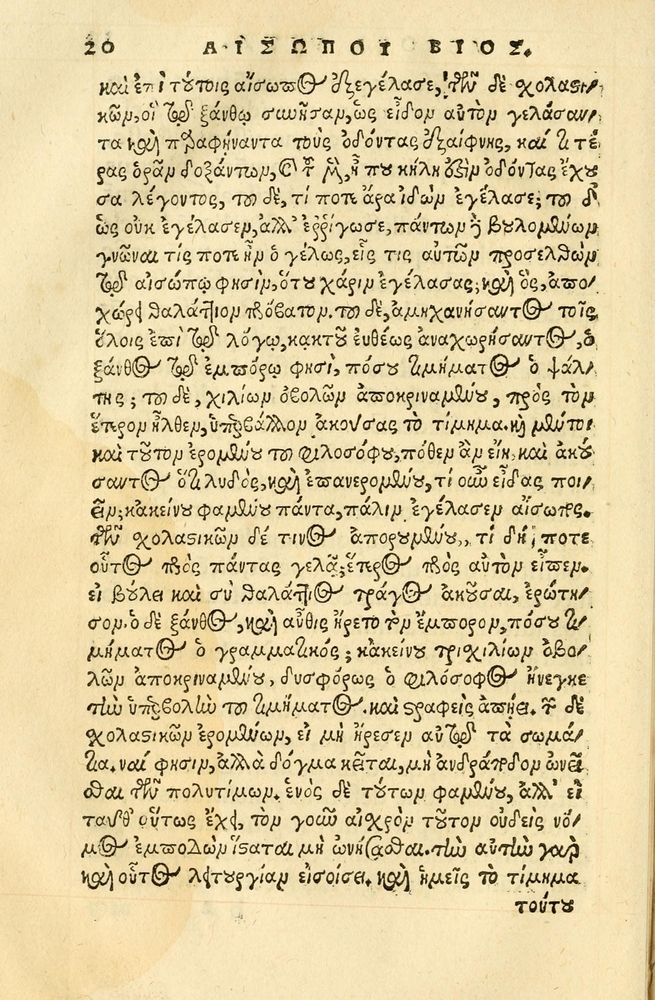 20 ΑΙΣΩΠΟΥ ΒΙΟΣ.
καὶ ἐπὶ τούτοις αἴσωπος ἐξεγέλασε, τῶν δὲ σχολαστι
κῶν, οἳ τῷ ξάνθῳ συνῆσαν, ὡς εἶδον αὐτὸν γελάσαν
τα καὶ παραφήναντα τοὺς ὀδόντας ἐξαίφνης, καί τι τέ
ρας ὁρᾶν δοξάντων, κήλη ἐστὶν ὀδόντας ἔχου
σα λέγοντος, τοῦ δὲ, τί ποτε ἄρα ἰδὼν ἐγέλασε; τοῦ δ'
ὡς οὐκ ἐγέλασεν, ἀλλ' ἐρρίγωσε, πάντων ἢ βουλομένων
γνῶναι τίς ποτ' ἦν ὁ γέλως, εἷς τις αὐτῶν προσελθὼν
τῷ αἰσώπῳ φησὶν, ὅτου χάριν ἐγέλασας; καὶ ὃς, ἀπο
χώρει θαλάττιον πρόβατον. τοῦ δὲ, ἀμηχανήσαντος τοῖς
ὅλοις ἐπὶ τῷ λόγῳ, κἀκ τοῦ εὐθέως ἀναχωρήσαντος, ὁ
ξάνθος τῷ ἐμπόρῳ φησὶ, πόσου τιμήματος ὁ ψάλ
της; τοῦ δὲ, χιλίων ὀβολῶν ἀποκριναμένου, πρὸς τὸν
ἕτερον ἦλθεν, ὑπερβάλλον ἀκούσας τὸ τίμημα. καὶ μέντοι
καὶ τοῦτον ἐρομένου τοῦ φιλοσόφου, πόθεν ἂν εἴη, καὶ ἀκού
σαντος ὅτι λυδὸς, καὶ ἐπανερομένου, τί οὖν εἶδας ποι
εῖν; κἀκείνου φαμένου πάντα, πάλιν ἐγέλασεν αἴσωπος.
τῶν σχολαστικῶν δέ τινος ἀπορουμένου, τί δή ποτε
οὗτος πρὸς πάντας γελᾷ; ἕτερος πρὸς αὐτὸν εἶπεν.
εἰ βούλει καὶ σὺ θαλάττιος τράγος ἀκοῦσαι, ἐρώτη
σον. ὁ δὲ ξάνθος, καὶ αὖθις ἤρετο τὸν ἔμπορον, πόσου τι
μήματος ὁ γραμματικός; κἀκείνου τρισχιλίων ὀβο
λῶν ἀποκριναμένου, δυσφόρως ὁ φιλόσοφος ἤνεγκε
τὴν ὑπερβολὴν τοῦ τιμήματος. καὶ στραφεὶς ἀπῄει. τῶν δὲ
σχολαστικῶν ἐρομένων, εἰ μὴ ἤρεσεν αὐτῷ τὰ σωμά
τια. ναί φησιν, ἀλλὰ δόγμα κεῖται, μὴ ἀνδράποδον ὠνεῖ
σθαι τῶν πολυτίμων. ἑνὸς δὲ τούτων φαμένου, ἀλλ' εἰ
ταῦθ' οὕτως ἔχει, τὸν γοῦν αἰσχρὸν τοῦτον οὐδεὶς νό
μος ἐμποδὼν ἵσταται μὴ ὠνήσασθαι. τὴν αὐτὴν γὰρ
καὶ οὗτος λειτουργίαν εἰσοίσει. καὶ ἡμεῖς τὸ τίμημα
τούτου